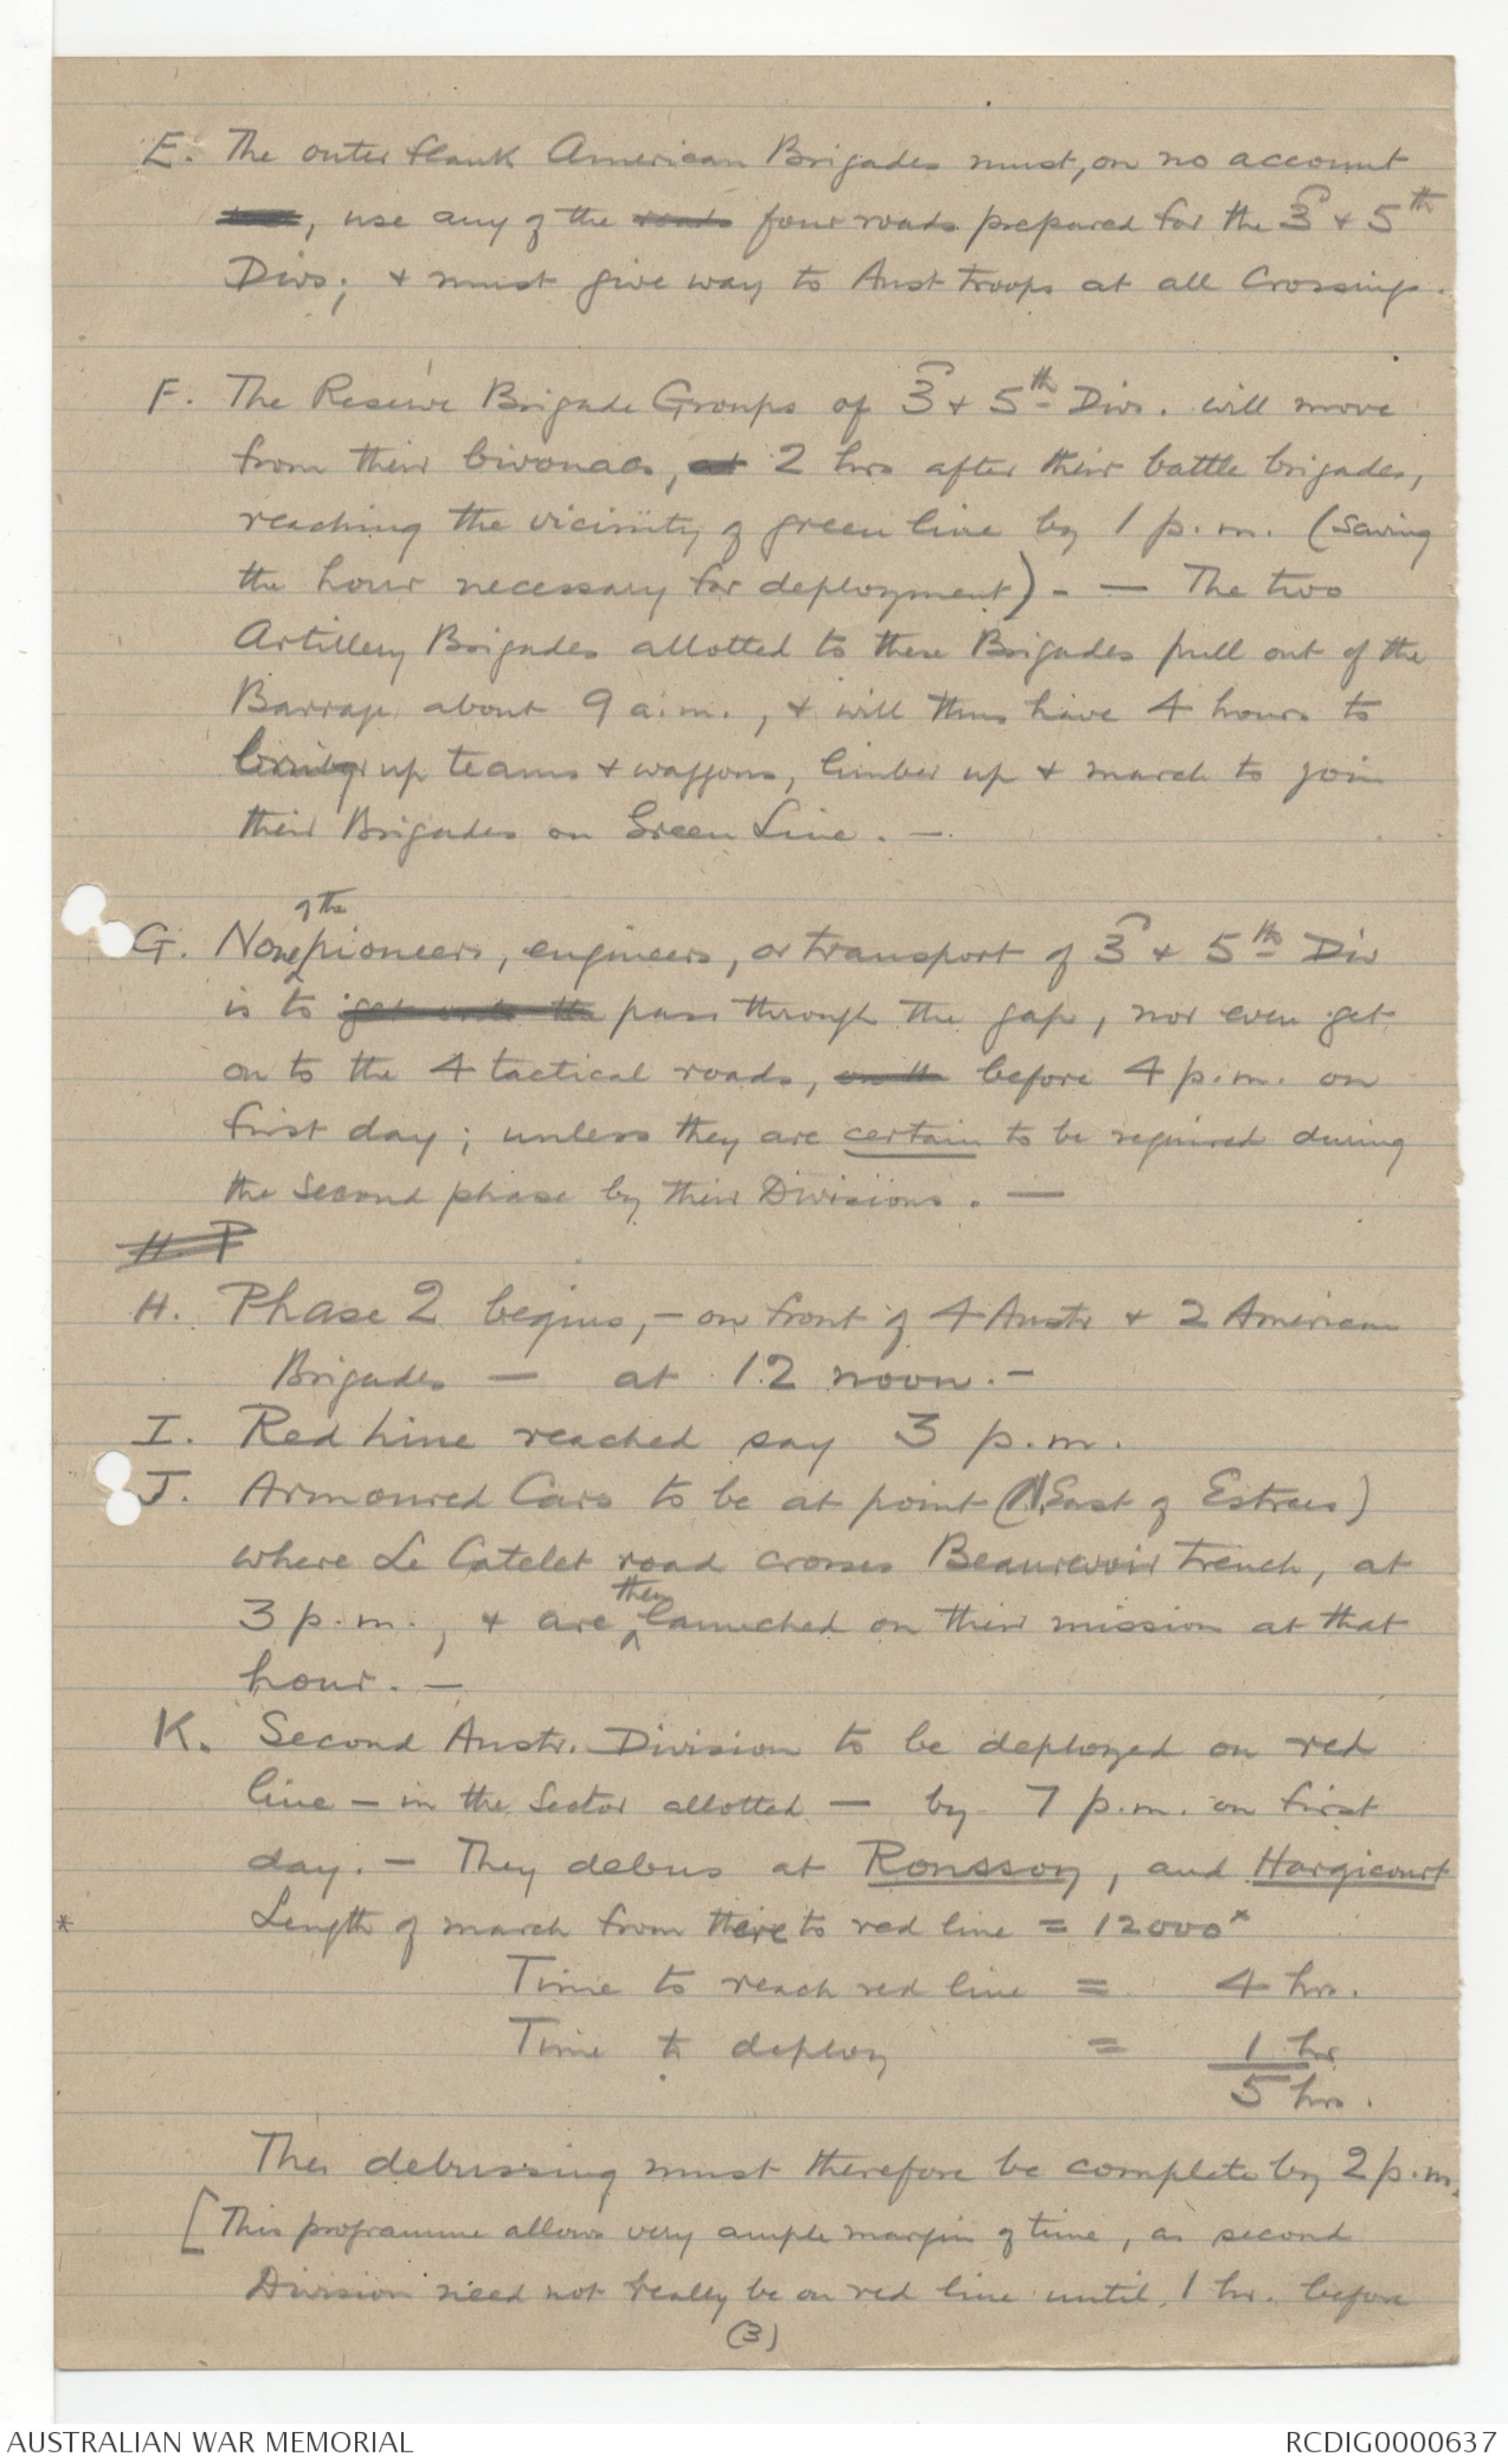 E. The outer flank American Brigades must, on no account
, use any of the roads four roads prepared for the 3rd & 5th
Divs; & must give way to Aust troops at all Crossings.
F. The Reserve Brigade Groups of 3rd & 5th Divs. will move
from their bivouacs, at 2 hrs after their battle brigades,
reaching the vicinity of green line by 1 p.m. (saving
the hour necessary for deployment). — The two
Artillery Brigades allotted to these Brigades pull out of the
Barrage about 9 a.m., & will thus have 4 hours to
bring up teams & waggons, limber up & march to join
their Brigades on Green Line. —
of the
G. None pioneers, engineers, or transport of 3rd & 5th Div
is to get onto the pass through the gap, nor even get
on to the 4 tactical roads, on the before 4 p.m. on
first day; unless they are certain to be required during
the second phase by their Divisions. —
H. P
H. Phase 2 begins, - on front of 4 Austr & 2 American
Brigades — at 12 noon. -
I. Red Line reached say 3 p.m.
J. Armoured Cars to be at point (N. East of Estrees)
where Le Catelet road crosses Beaurevoir trench, at
then
3 p.m., & are launched on their mission at that
hour. —
K. Second Austr. Division to be deployed on red
line - in the Sector allotted — by 7 p.m. on first
day. - They debus at Ronssoy, and Hargicourt
* Length of march from there to red line = 12000x
Time to reach red line = 4 hrs.
Time to deploy = 1 hr
5 hrs.
The debussing must therefore be complete by 2 p.m.
[This programme allows very ample margin of time, as second
Division need not really be on red line until 1 hr. before
(3)
AUSTRALIAN WAR MEMORIAL
RCDIG0000637